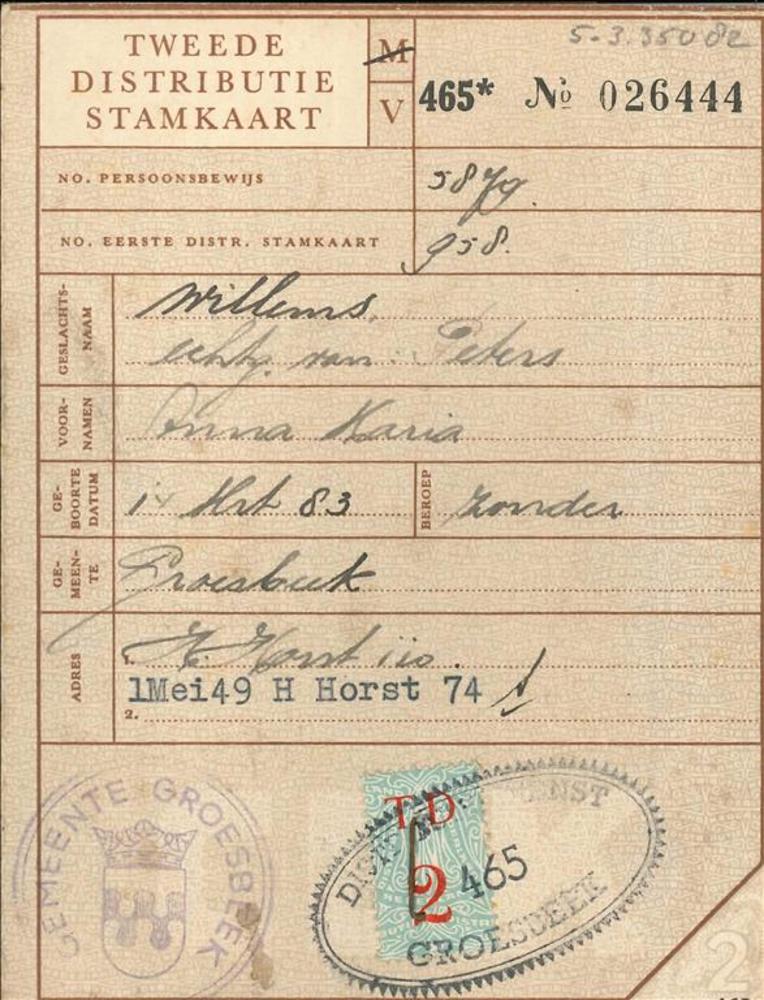 TWEEDE
DISTRIBUTIE
STAMKAART
M
V
5-3.35082
465* № 026444
NO. PERSOONSBEWIJS 5879.
NO. EERSTE DISTR. STAMKAART 958.
GESLACHTS-
NAAM
Willems,
echtg. van: Peters
VOOR-
NAMEN
Anna Maria
GE-
BOORTE
DATUM
14 Mrt 83
BEROEP
zonder
GE-
MEEN-
TE
Groesbeek
ADRES
1. H. Horst
1Mei49 H Horst 74
2.
GEMEENTE GROESBEEK
TD
2
465
GROESBEEK
2